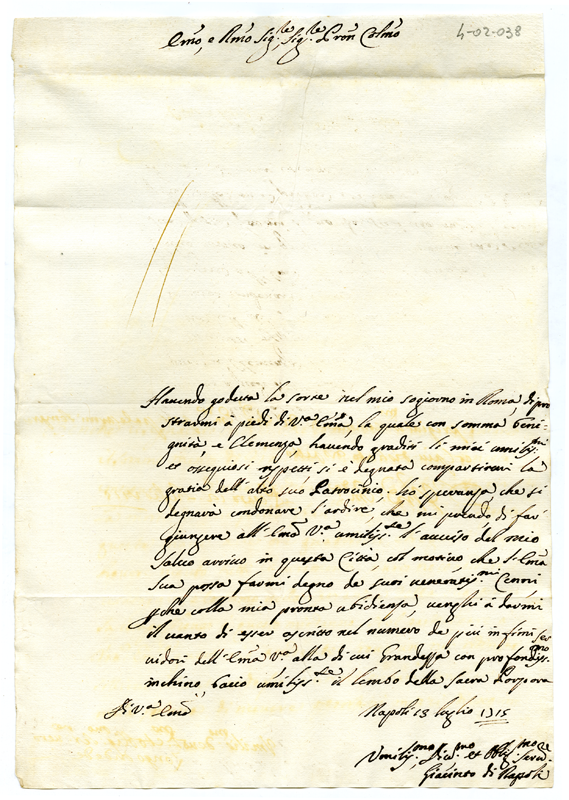 4-02-038
Emo, e Rmo Sig.re Sig.re Pron Colmo
Hauendo goduta la sorte nel mio sogiorno in Roma, di pro
strarmi à piedi di V.a Em.a, la quale con somma beni-
gnità, e Clemenza, hauendo graditi li miei umiliss.mi
et ossequiosi rispetti si è degnata compartirmi la
gratia dell'alto suo Patrocinio. ho speranza, che si
degnarà condonare l'ardire, che mi prendo, di far
giungere all'Em.a V.a umiliss.te l'auuiso del mio
saluo arriuo in questa Città col motiuo che l'Em.a
Sua possa farmi degno de suoi veneratiss.mi Cenni
che colla mia pronta ubidienza, venghi à darmi
il uanto di esser ascritto nel numero de più infimi ser
uidori dell'Em.a V.a alla di cui Grandezza con profondiss.mo
inchino, bacio umiliss.te il lembo della Sacra Porpora
Di V.a Em.a Napoli 13 luglio 1715
Vmiliss.mo Diu.mo et Obl.mo Seru.re
Giacinto di Napoli